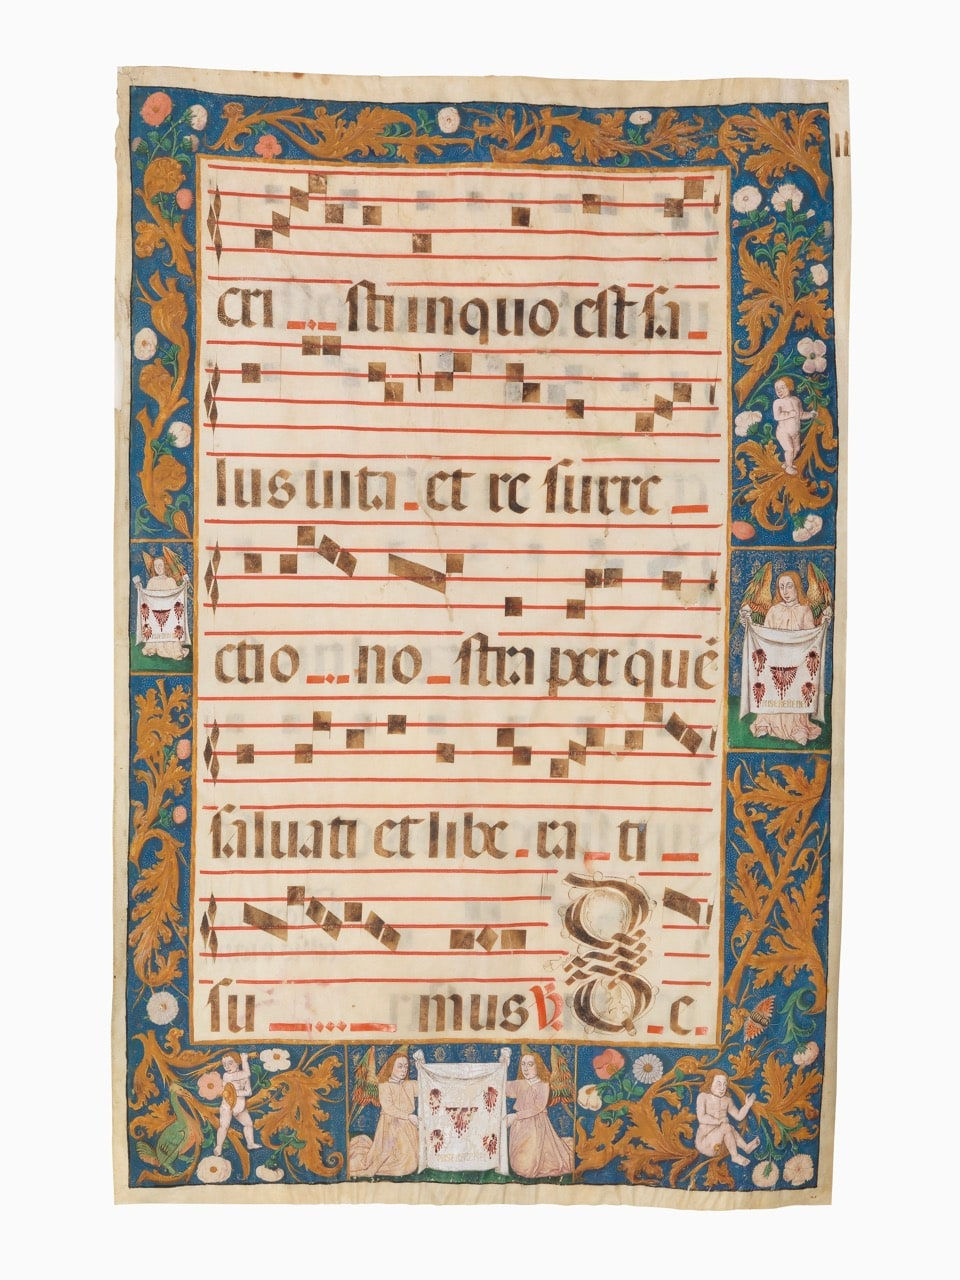 cri sti in quo est sa
lus uita et re surre
ctio no stra per quē
saluati et libe ra ti
su mus ℣